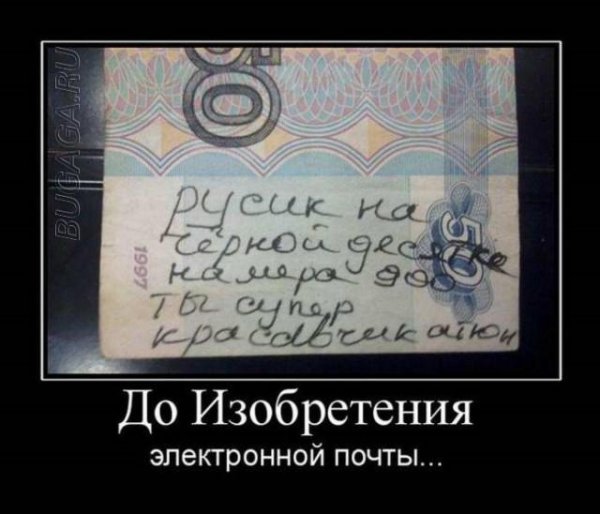 BUGAGA.RU
50
русик на
чёрной десятке
намера 900
ты супер
красавчик
50
1997
До Изобретения
электронной почты...